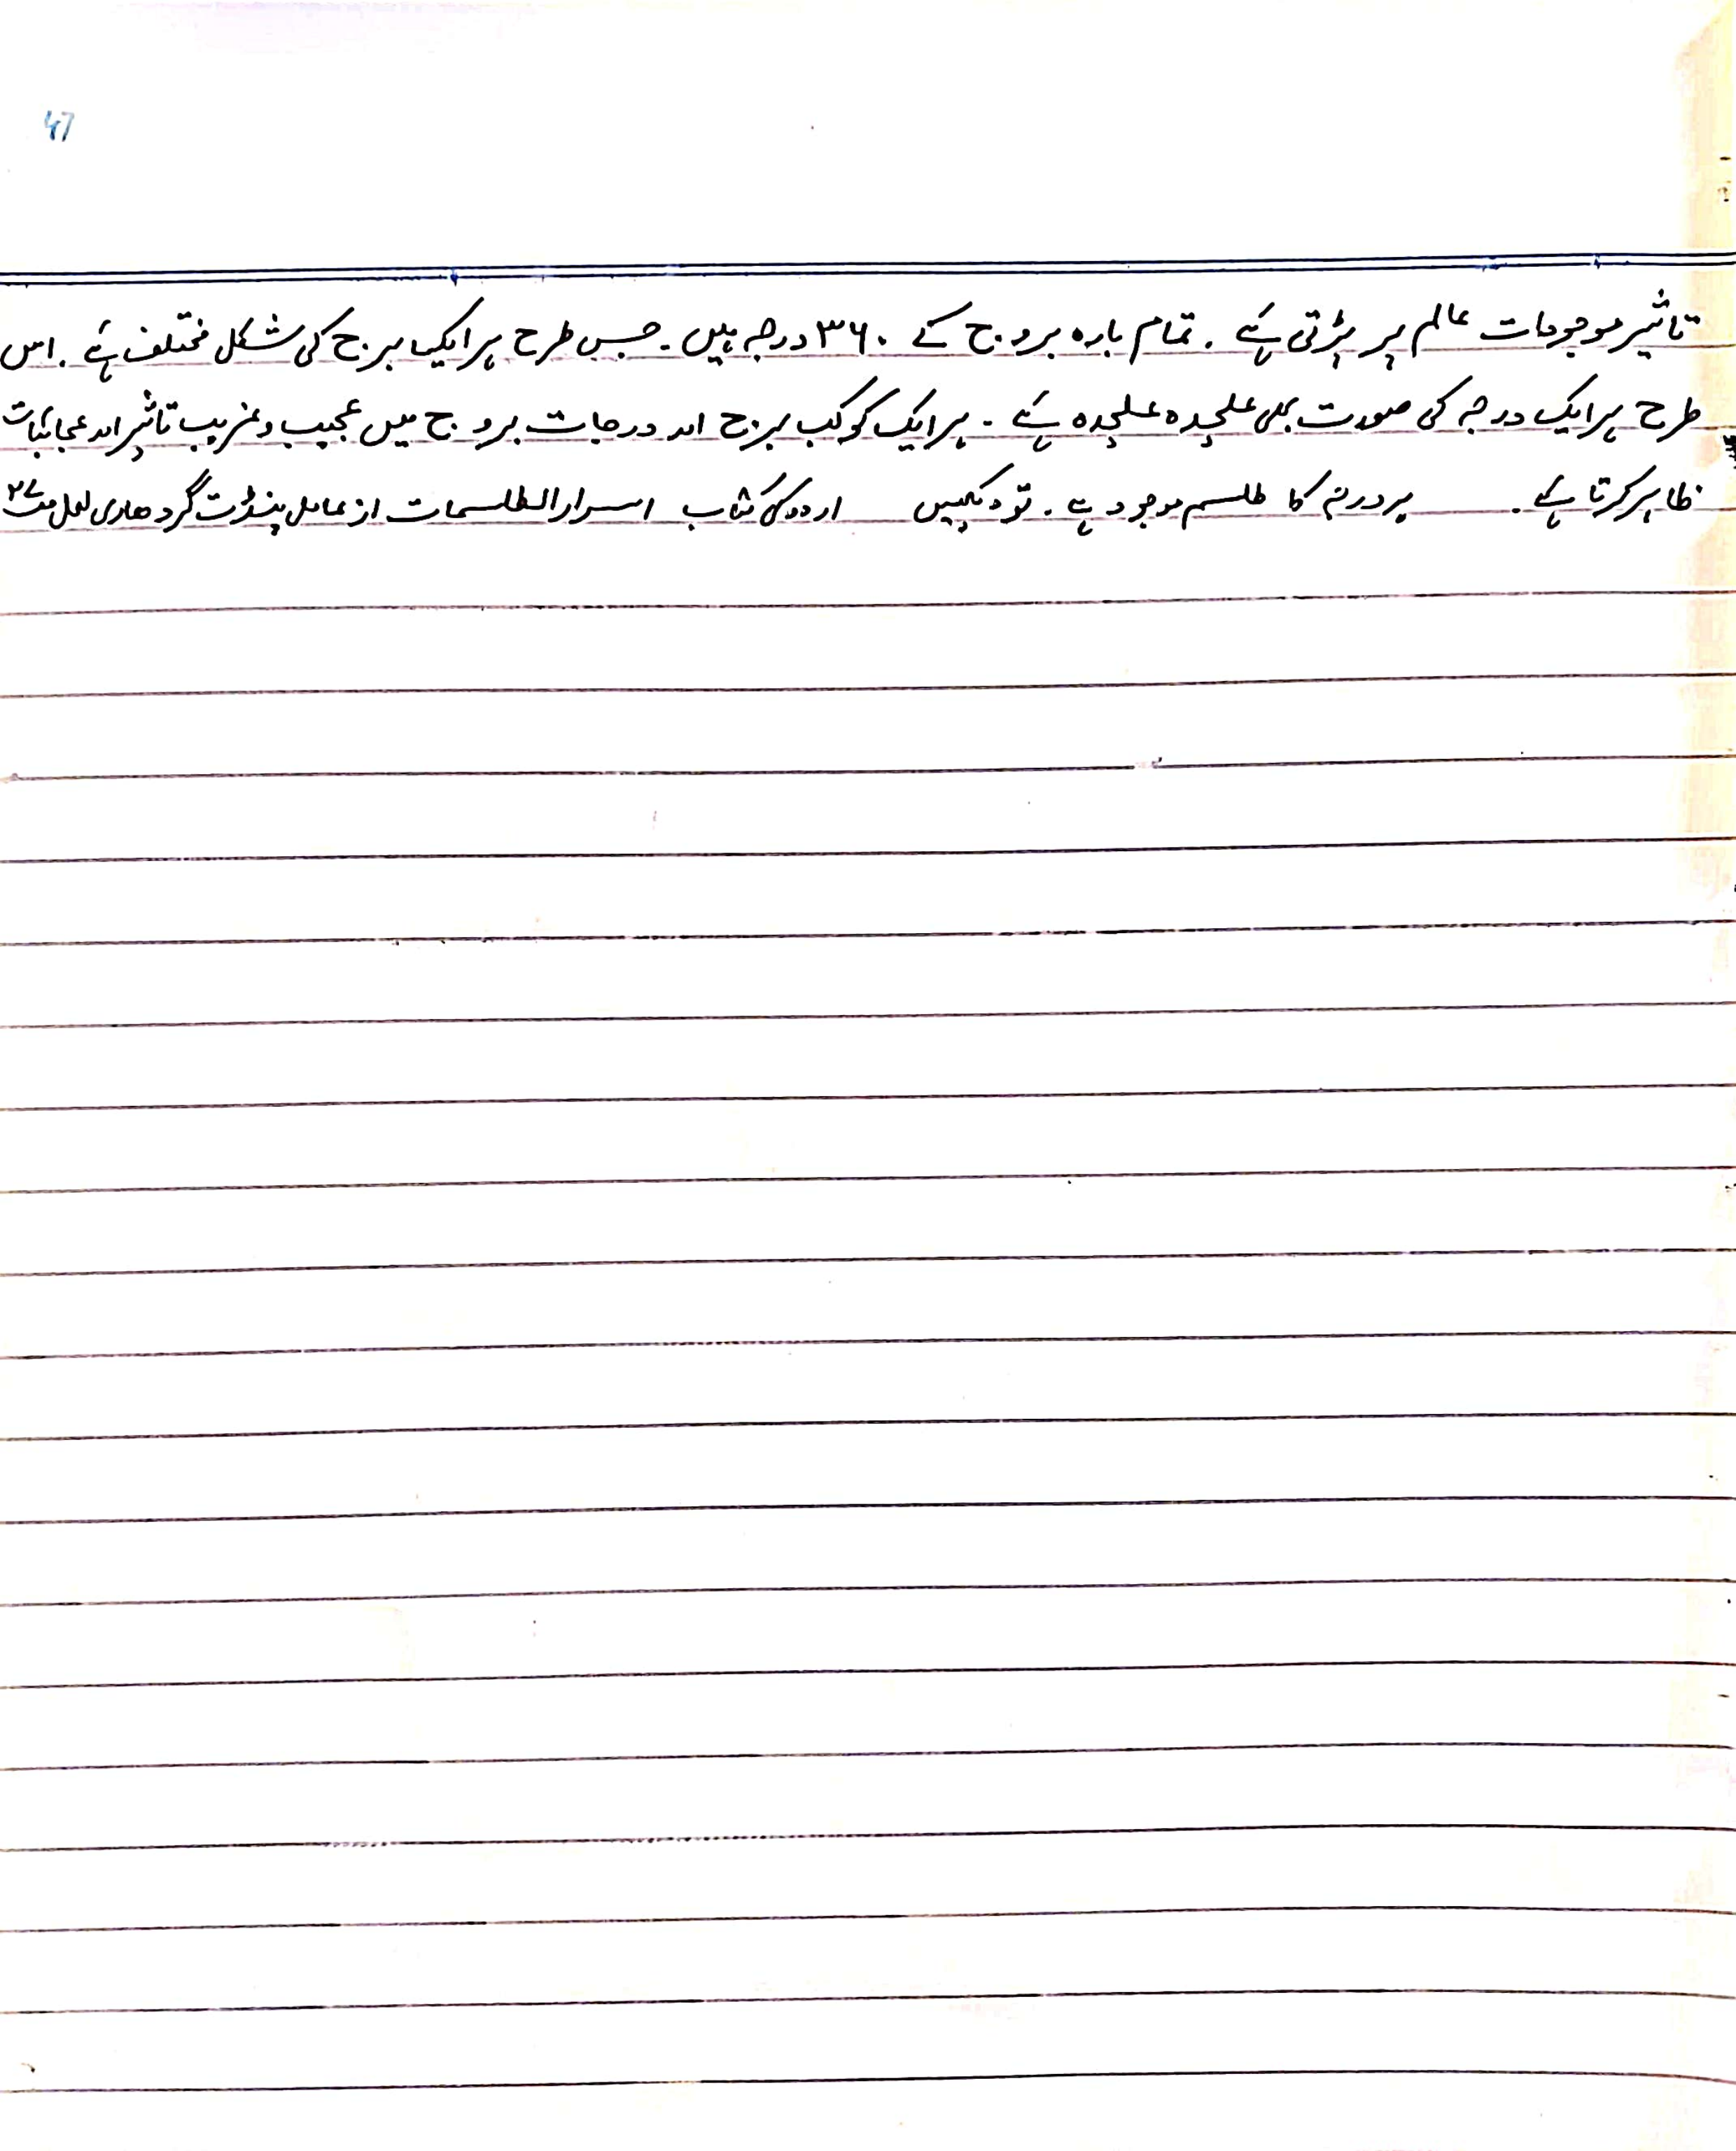 47
تاثیر موجودات عالم پر پڑتی ہے ۔ تمام بارہ بروج کے ۳۶۰ درجہ ہیں ۔ جس طرح ہر ایک برج کی شکل مختلف ہے ۔ اس
طرح ہر ایک درجہ کی صورت بھی علیحدہ علیحدہ ہے ۔ ہر ایک کوکب برج اور درجات بروج میں عجیب و غریب تاثیر اور عجائبات
ظاہر کرتا ہے ۔ ہر درجہ کا طلسم موجود ہے ۔ تو دیکھیں اردو کی کتاب اسرار الطلسمات از عامل پنڈت گردھاری لعل